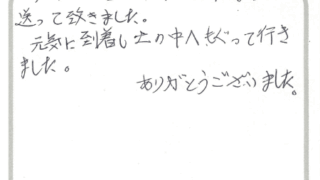 送って致きました。
元気に到着し土の中へもぐって行き
ました。
ありがとうございました。